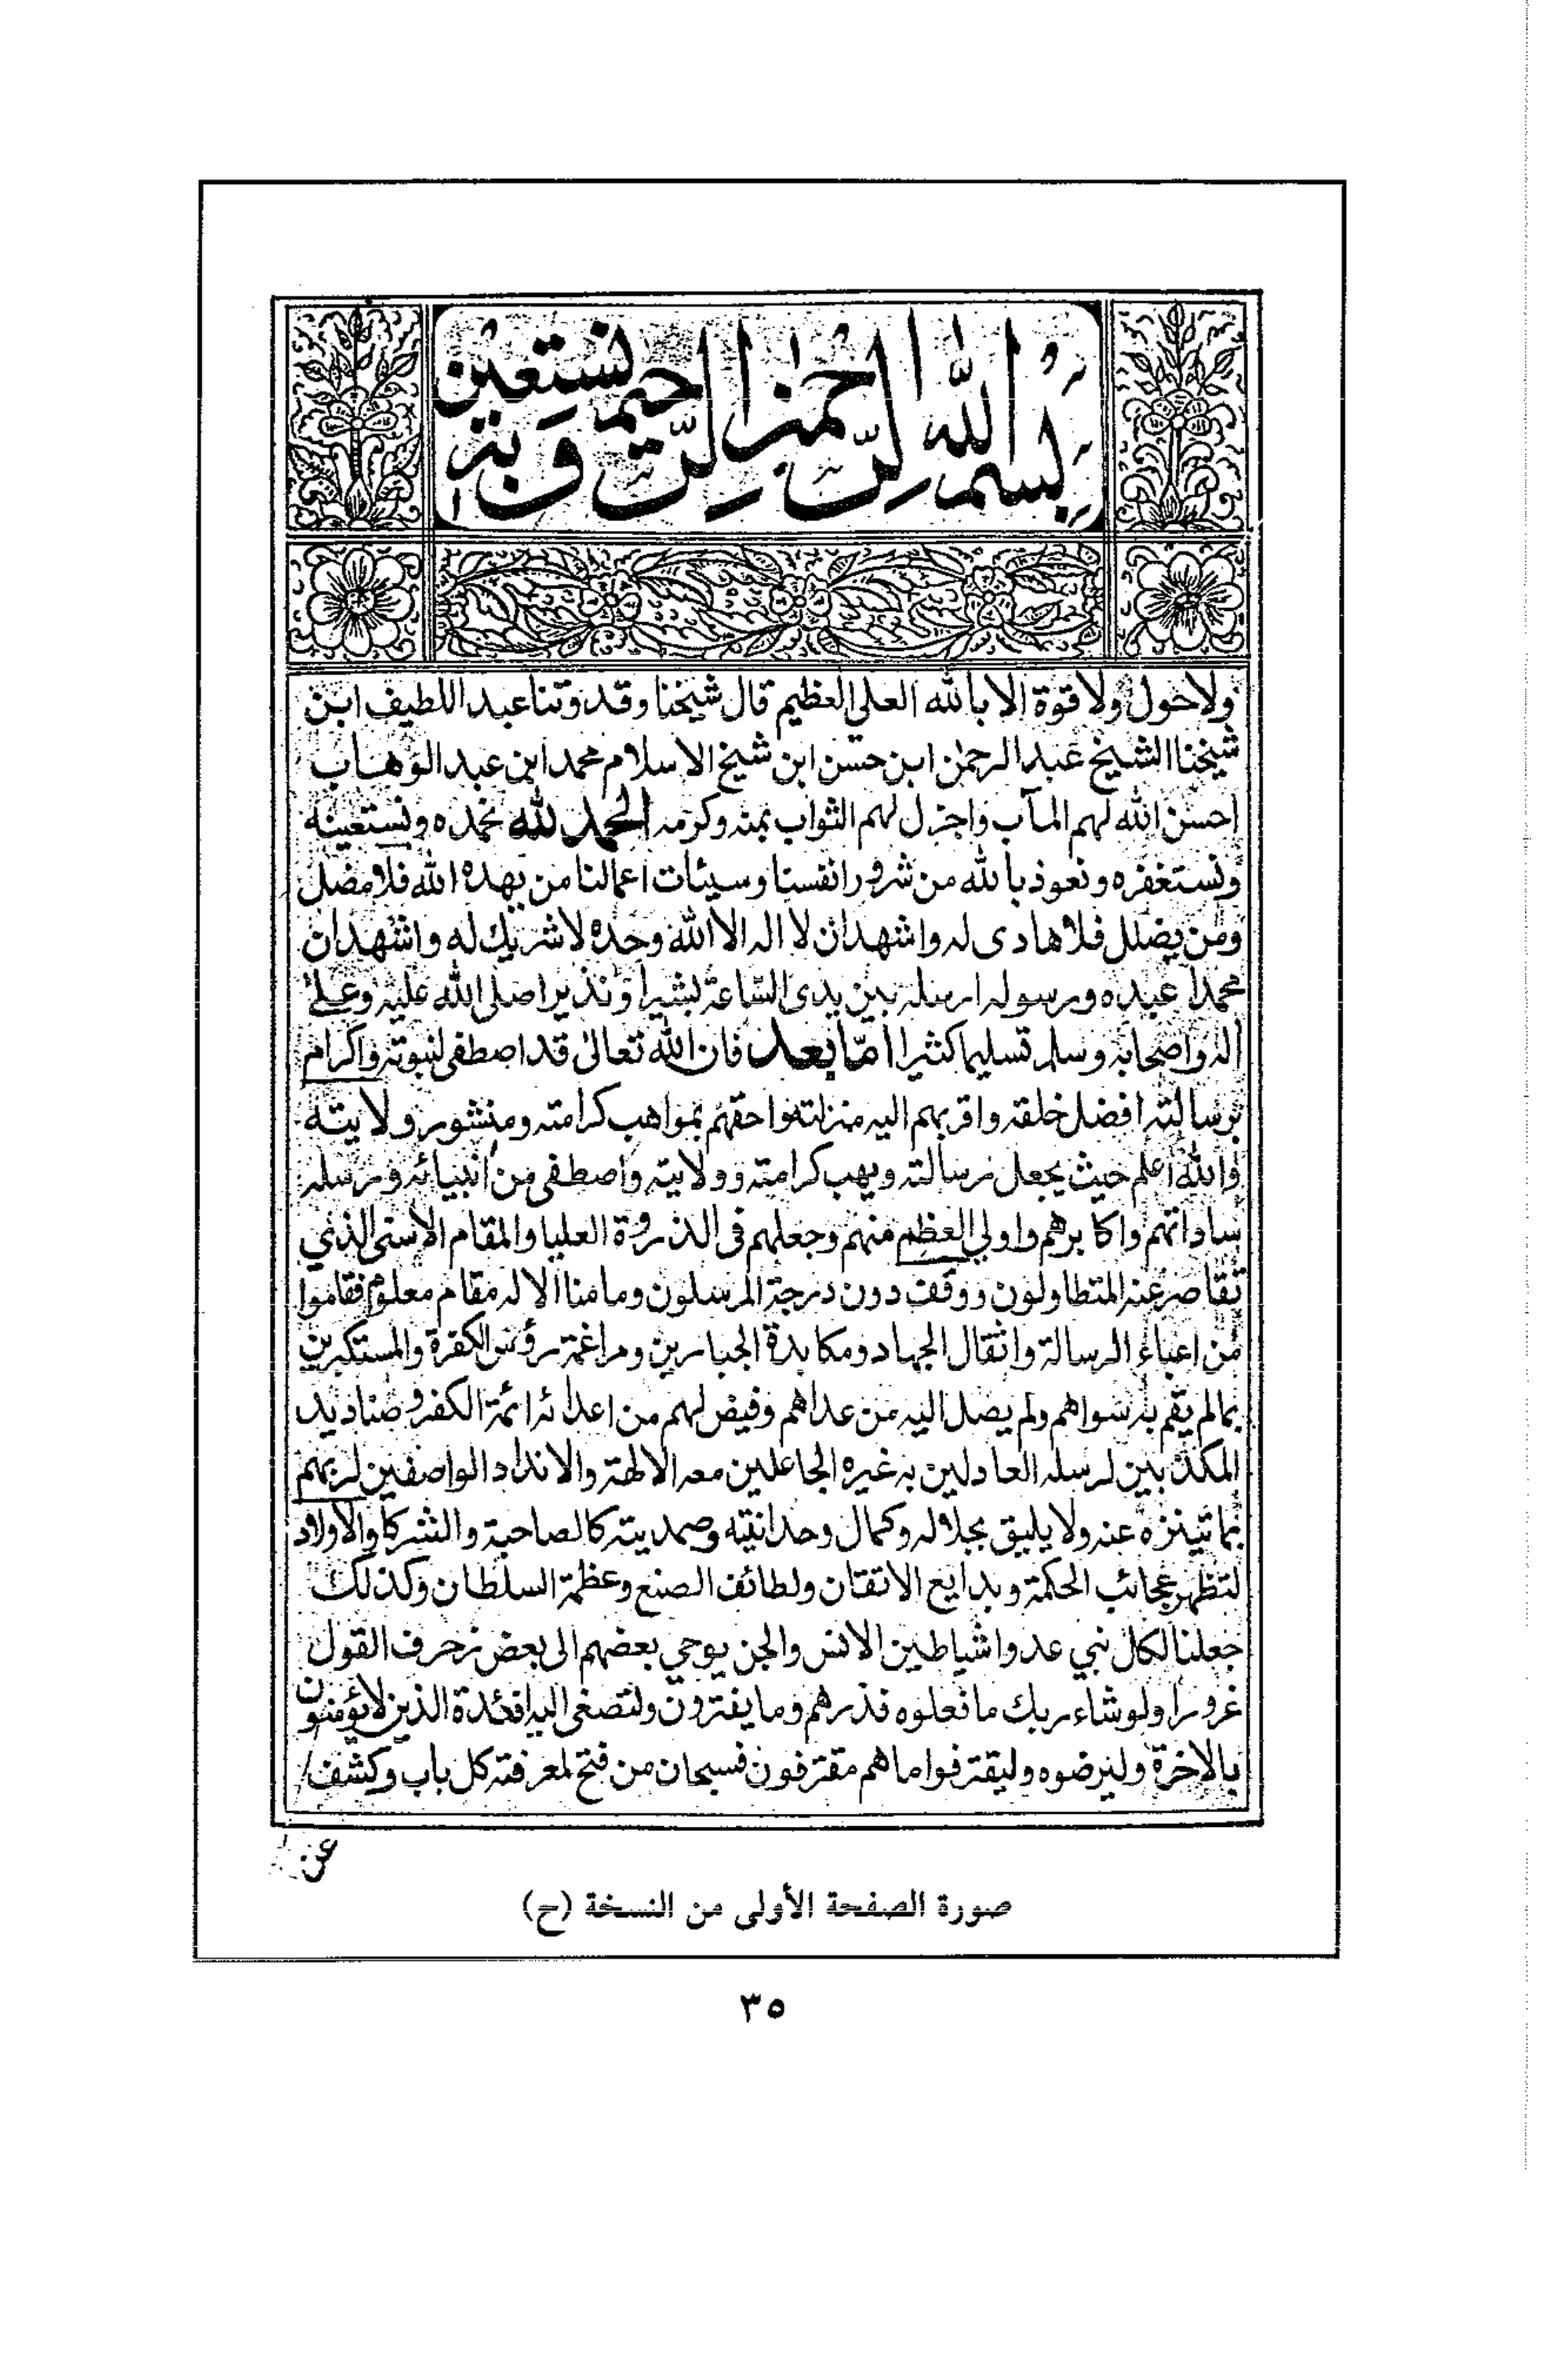 بسم الله الرحمن الرحيم وبه نستعين
ولاحول ولا قوة الا بالله العلي العظيم قال شيخنا وقدوتنا عبد اللطيف ابن
شيخنا الشيخ عبد الرحمن ابن حسن ابن شيخ الاسلام محمد ابن عبد الوهاب
احسن الله لهم المآب واجزل لهم الثواب بمنه وكرمه الحمد لله نحمده ونستعينه
ونستغفره ونعوذ بالله من شرور انفسنا وسيئات اعمالنا من يهده الله فلا مضل
ومن يضلل فلا هادى له واشهد ان لا اله الا الله وحده لا شريك له واشهد ان
محمدا عبده ورسوله ارسله بين يدى الساعة بشيرا ونذيرا صلى الله عليه وعلى
اله واصحابه وسلم تسليما كثيرا امّا بعد فان الله تعالى قد اصطفى لنبوته واكرام
برسالته افضل خلقه واقربهم اليه منزلته واحقهم بمواهب كرامته ومنشور ولايته
والله اعلم حيث يجعل رسالته ويهب كرامته وولايته واصطفى من انبيائه ورسله
ساداتهم واكابرهم واولي العظم منهم وجعلهم فى الذروة العليا والمقام الاسنى الذي
تقاصر عنه المتطاولون ووقف دون درجته المرسلون وما منا الا له مقام معلوم فقاموا
من اعباء الرسالة واثقال الجهاد ومكابدة الجبارين ومراغمة رؤس الكفرة والمستكبرين
بمالم يقم به سواهم ولم يصل اليه من عداهم وقيض لهم من اعدائه ائمة الكفر وصناديد
المكذبين لرسله العادلين به غيره الجاعلين معه الالهة والانداد الواصفين لربهم
بما تينزه عنه ولا يليق بجلاله وكمال وحدانيته وصمديته كالصاحبة والشركا والاولاد
لتظهر عجائب الحكمة وبدايع الاتقان ولطائف الصنع وعظمة السلطان وكذلك
جعلنا لكل نبي عدوا شياطين الانس والجن يوحي بعضهم الى بعض زخرف القول
غرورا ولو شاء ربك ما فعلوه فذرهم وما يفترون ولتصغى اليه افئدة الذين لا يؤمنون
بالاخرة وليرضوه وليقترفوا ما هم مقترفون فسبحان من فتح لمعرفته كل باب وكشف
عن
صورة الصفحة الأولى من النسخة (ح)
٣٥